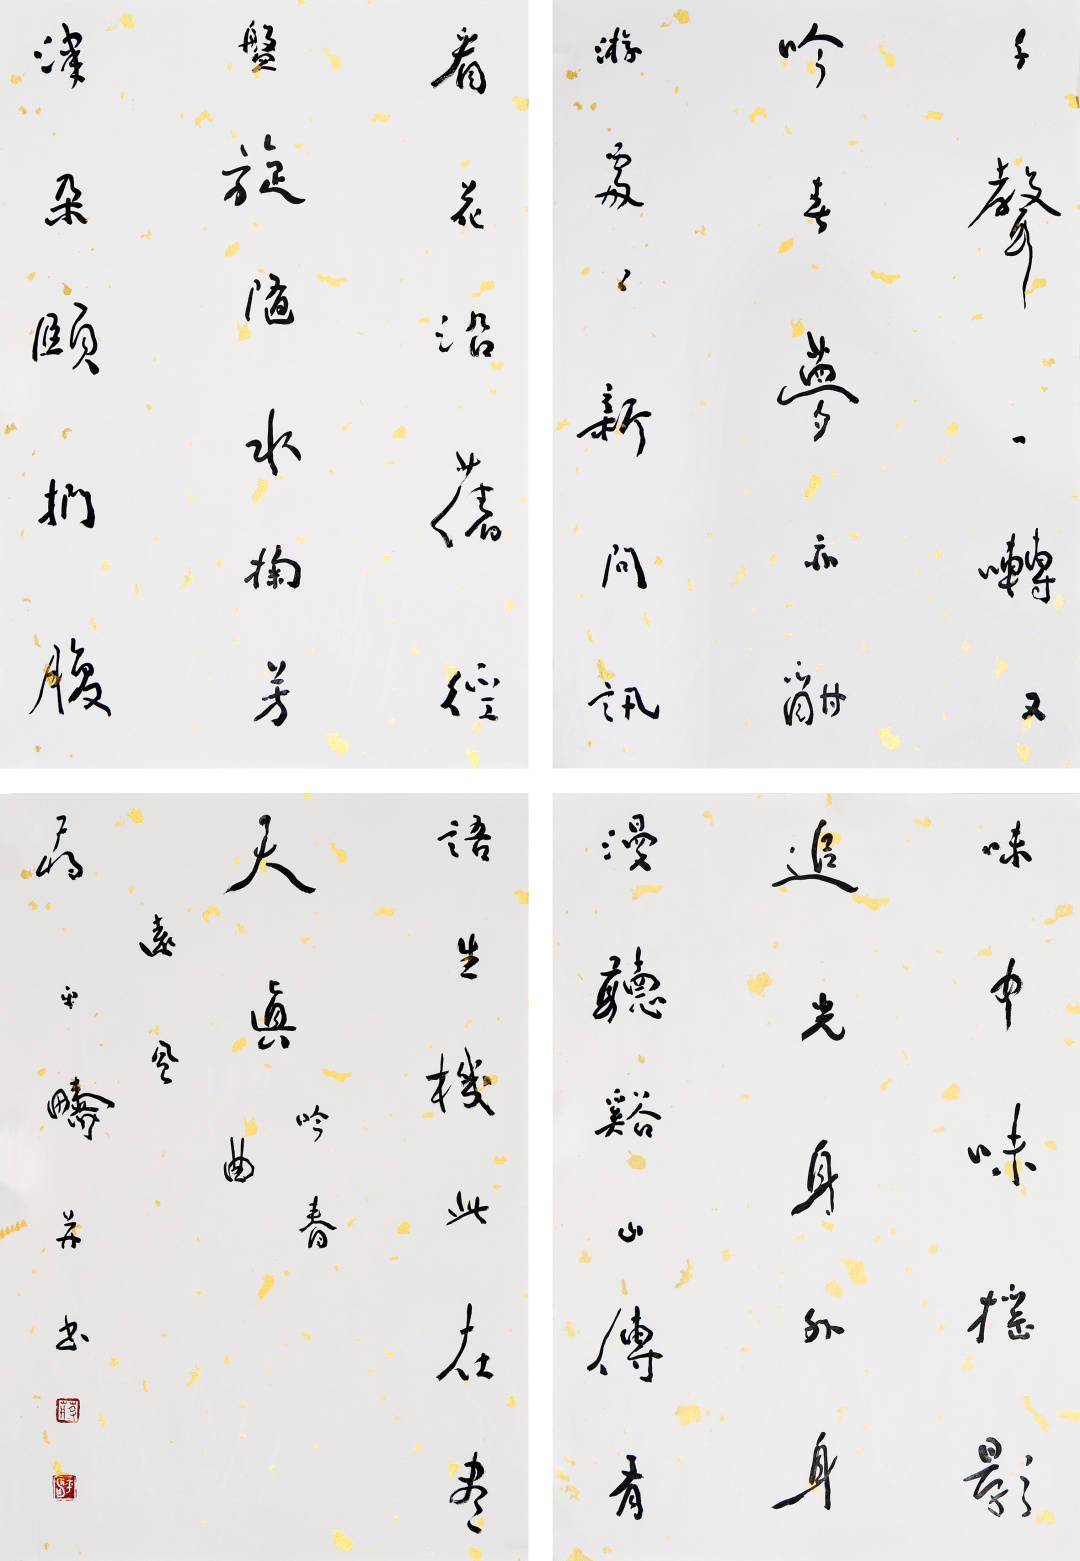 千聲一囀又
吟春夢亦酣
游處々新問訊
看花沿舊徑
盤旋隨水掬芳
津朵頤捫腹
味中味搖影
追光身外身
漫聽谿山傳有
語生機此在盡
天真
吟春
曲
遠風
蔣平疇并書